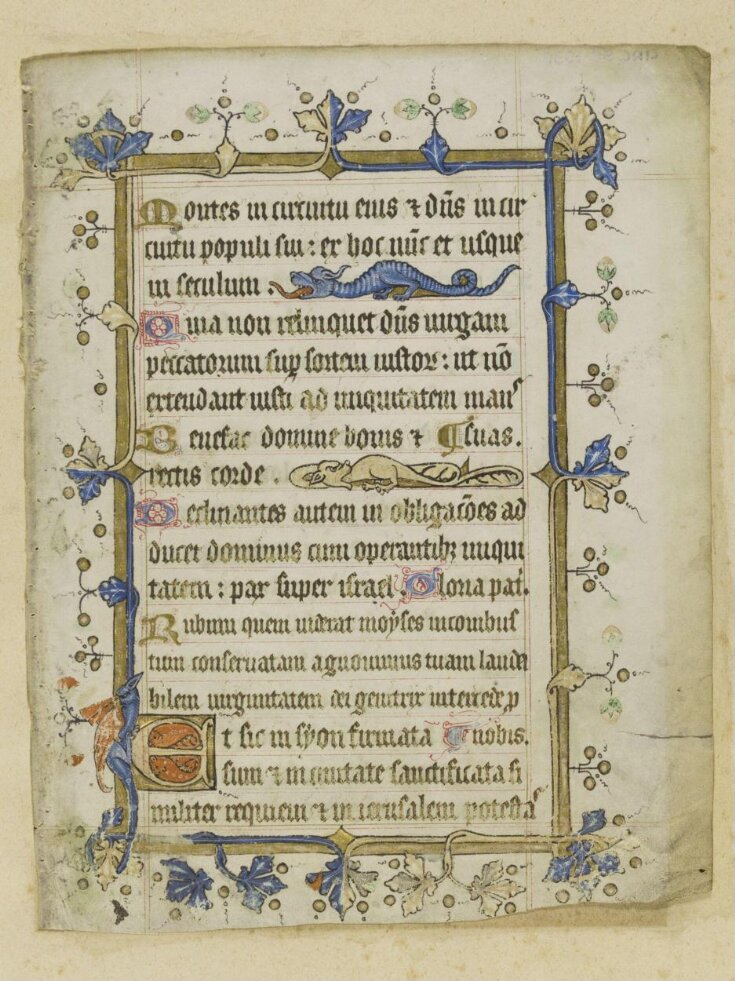 Montes in circuitu eius ⁊ dñs in cir
cuitu populi sui : ex hoc nũc et usque
in seculum
Quia non relinquet dñs uirgam
peccatorum sup sortem iustoꝝ : ut nõ
extendant iusti ad iniquitatem man⁹
Benefac domine bonis ⁊ suas.
rectis corde .
Declinantes autem in obligacões ad
ducet dominus cum operantibꝫ iniqui
tatem : pax super israel . Gloria pat̃.
Rubum quem uiderat moyses incombus
tum conseruatam agnouimus tuam lauda
bilem uirginitatem dei genitrix intercede p̱
Et sic in syon firmata nobis.
sum ⁊ in ciuitate sanctificata si
militer requieui ⁊ in ierusalem potestaˢ